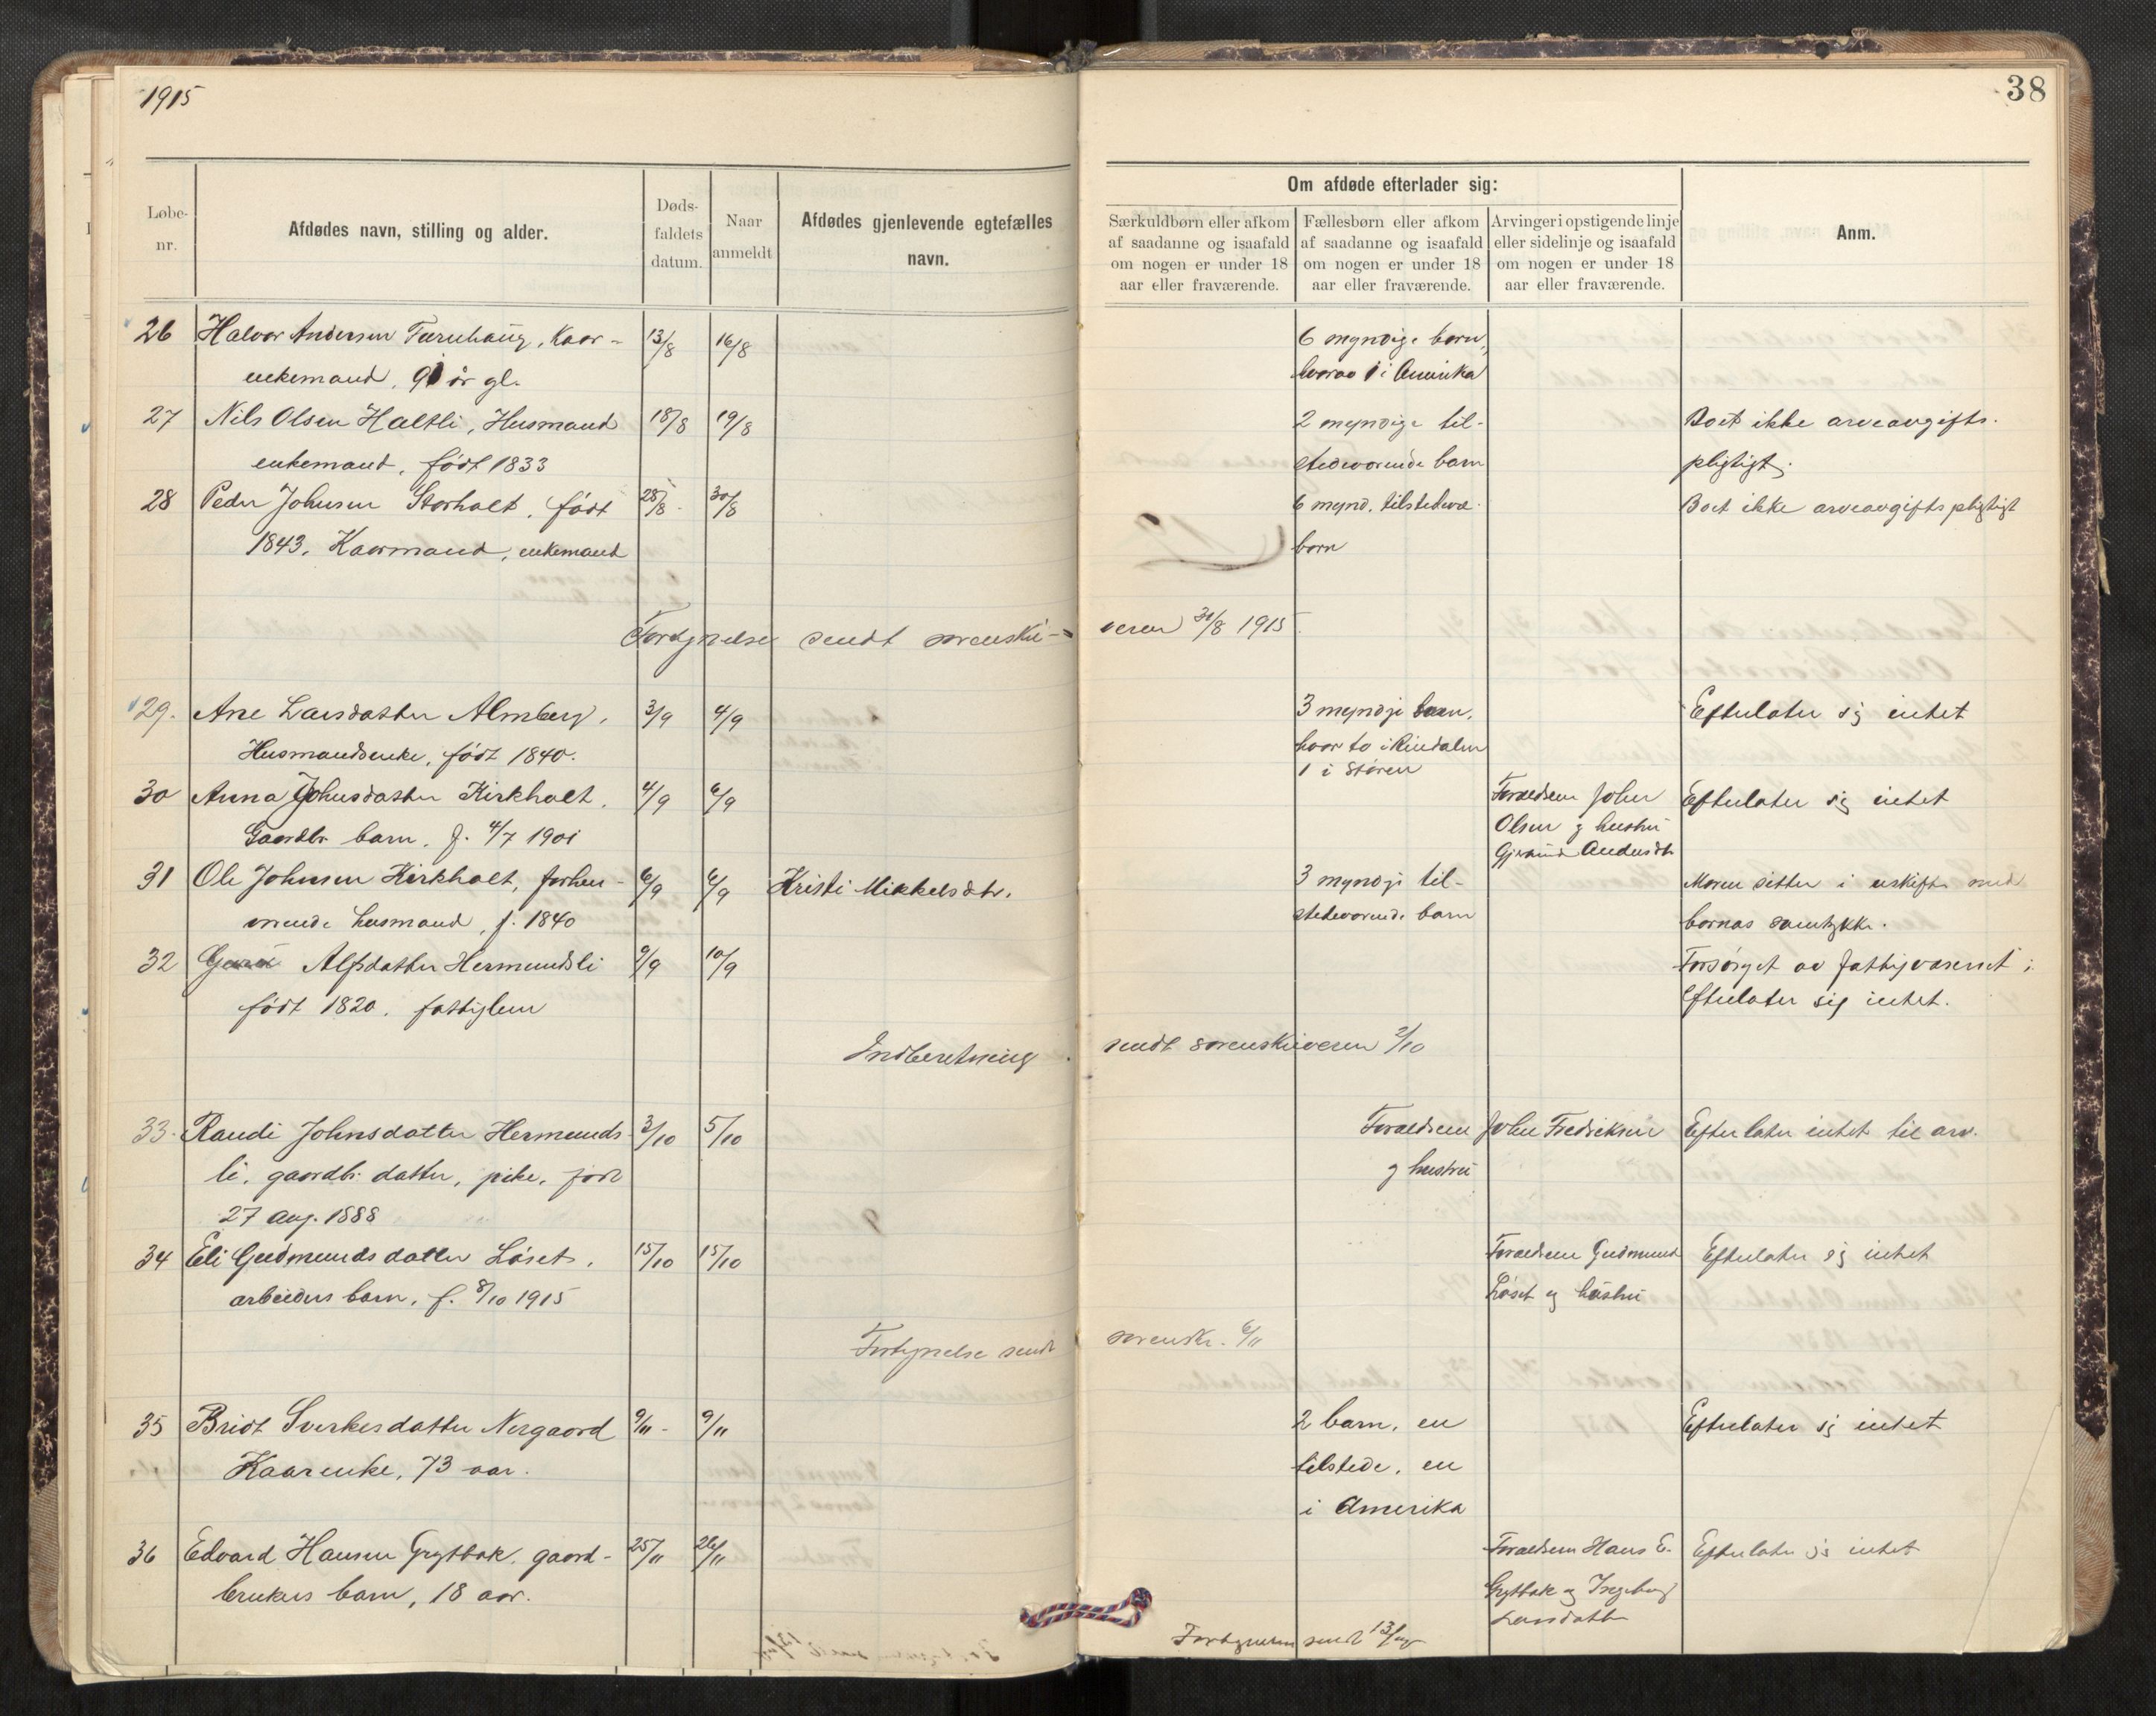 1915
38
Løbe-
nr.
Afdødes navn, stilling og alder.
Døds-
faldets
datum.
Naar
anmeldt
Afdødes gjenlevende egtefælles
navn.
Om afdøde efterlader sig:
Særkuldbørn eller afkom
af saadanne og isaafald
om nogen er under 18
aar eller fraværende.
Fællesbørn eller afkom
af saadanne og isaafald
om nogen er under 18
aar eller fraværende.
Arvinger i opstigende linje
eller sidelinje og isaafald
om nogen er under 18
aar eller fraværende.
Anm.
26 Halvor Andersen Kaar- 13/8 16/8 6 myndige born,
enkemand, 91 år gl. hvorav 1 i Amerika
27 Nils Olsen Haltli, Husmand 18/8 19/8 2 myndige til- Boet ikke arveavgifts-
enkemand, født 1833 stedevorende barn pligtigt.
28 Peder Johnsen Storholt, født 28/8 30/8 6 mynd. tilstedevæ- Boet ikke arveavgiftspligtigt
1843, Kaarmand, enkemand born
Fortegnelse sendt sorenskri- veren 30/8 1915
29. Ane Larsdatter Almberg, 3/9 4/9 3 myndje barn, Efterlater sig intet
Husmandsenke, født 1840. hvor to i Rindalen
1 i Støren
30 Anna Johnsdatter Kirkholt, 4/9 6/9 Foraeldrene John Efterlater sig intet
Gaardbr. barn, f. 4/7 1901 Olsen og hustru
Andersdtr
31 Ole Johnsen Kirkholt, forhen- 6/9 6/9 Kristi Mikkelsdtr. 3 myndje til- Moren sitter i uskifte med
vrende husmand, f. 1840 stedevorende barn bornas samtykke.
32 Alfsdatter Hermundsli 9/9 10/9 Forsørget av fattigvæsenet;
født 1820, fattiglem Efterlater sig intet.
Indberetning sendt sorenskriveren 2/10
33. Randi Johnsdatter Hermunds- 3/10 5/10 Foraeldrene John Fredriksen Efterlater intet til arv.
li, gaardbr. datter, pike, født og hustru
27 Aug. 1888
34 Eli Gudmundsdatter Løset, 15/10 15/10 Foraeldrene Gudmund Efterlater sig intet
arbeiders barn, f. 8/10 1915 Løset og hustru
Fortegnelse sendt sorenskr. 6/11
35 Bridt Sverkesdatter Nergaard 9/11 9/11 2 barn, en Efterlater sig intet
Kaarenke, 73 aar. tilstede, en
i Amerika
36 Edvard Hansen Grytbak, gaard- 25/11 26/11 Foraeldrene Hans E. Efterlater sig intet
brukers barn, 18 aar. Grytbak og Ingeborg
Larsdatter
sendt